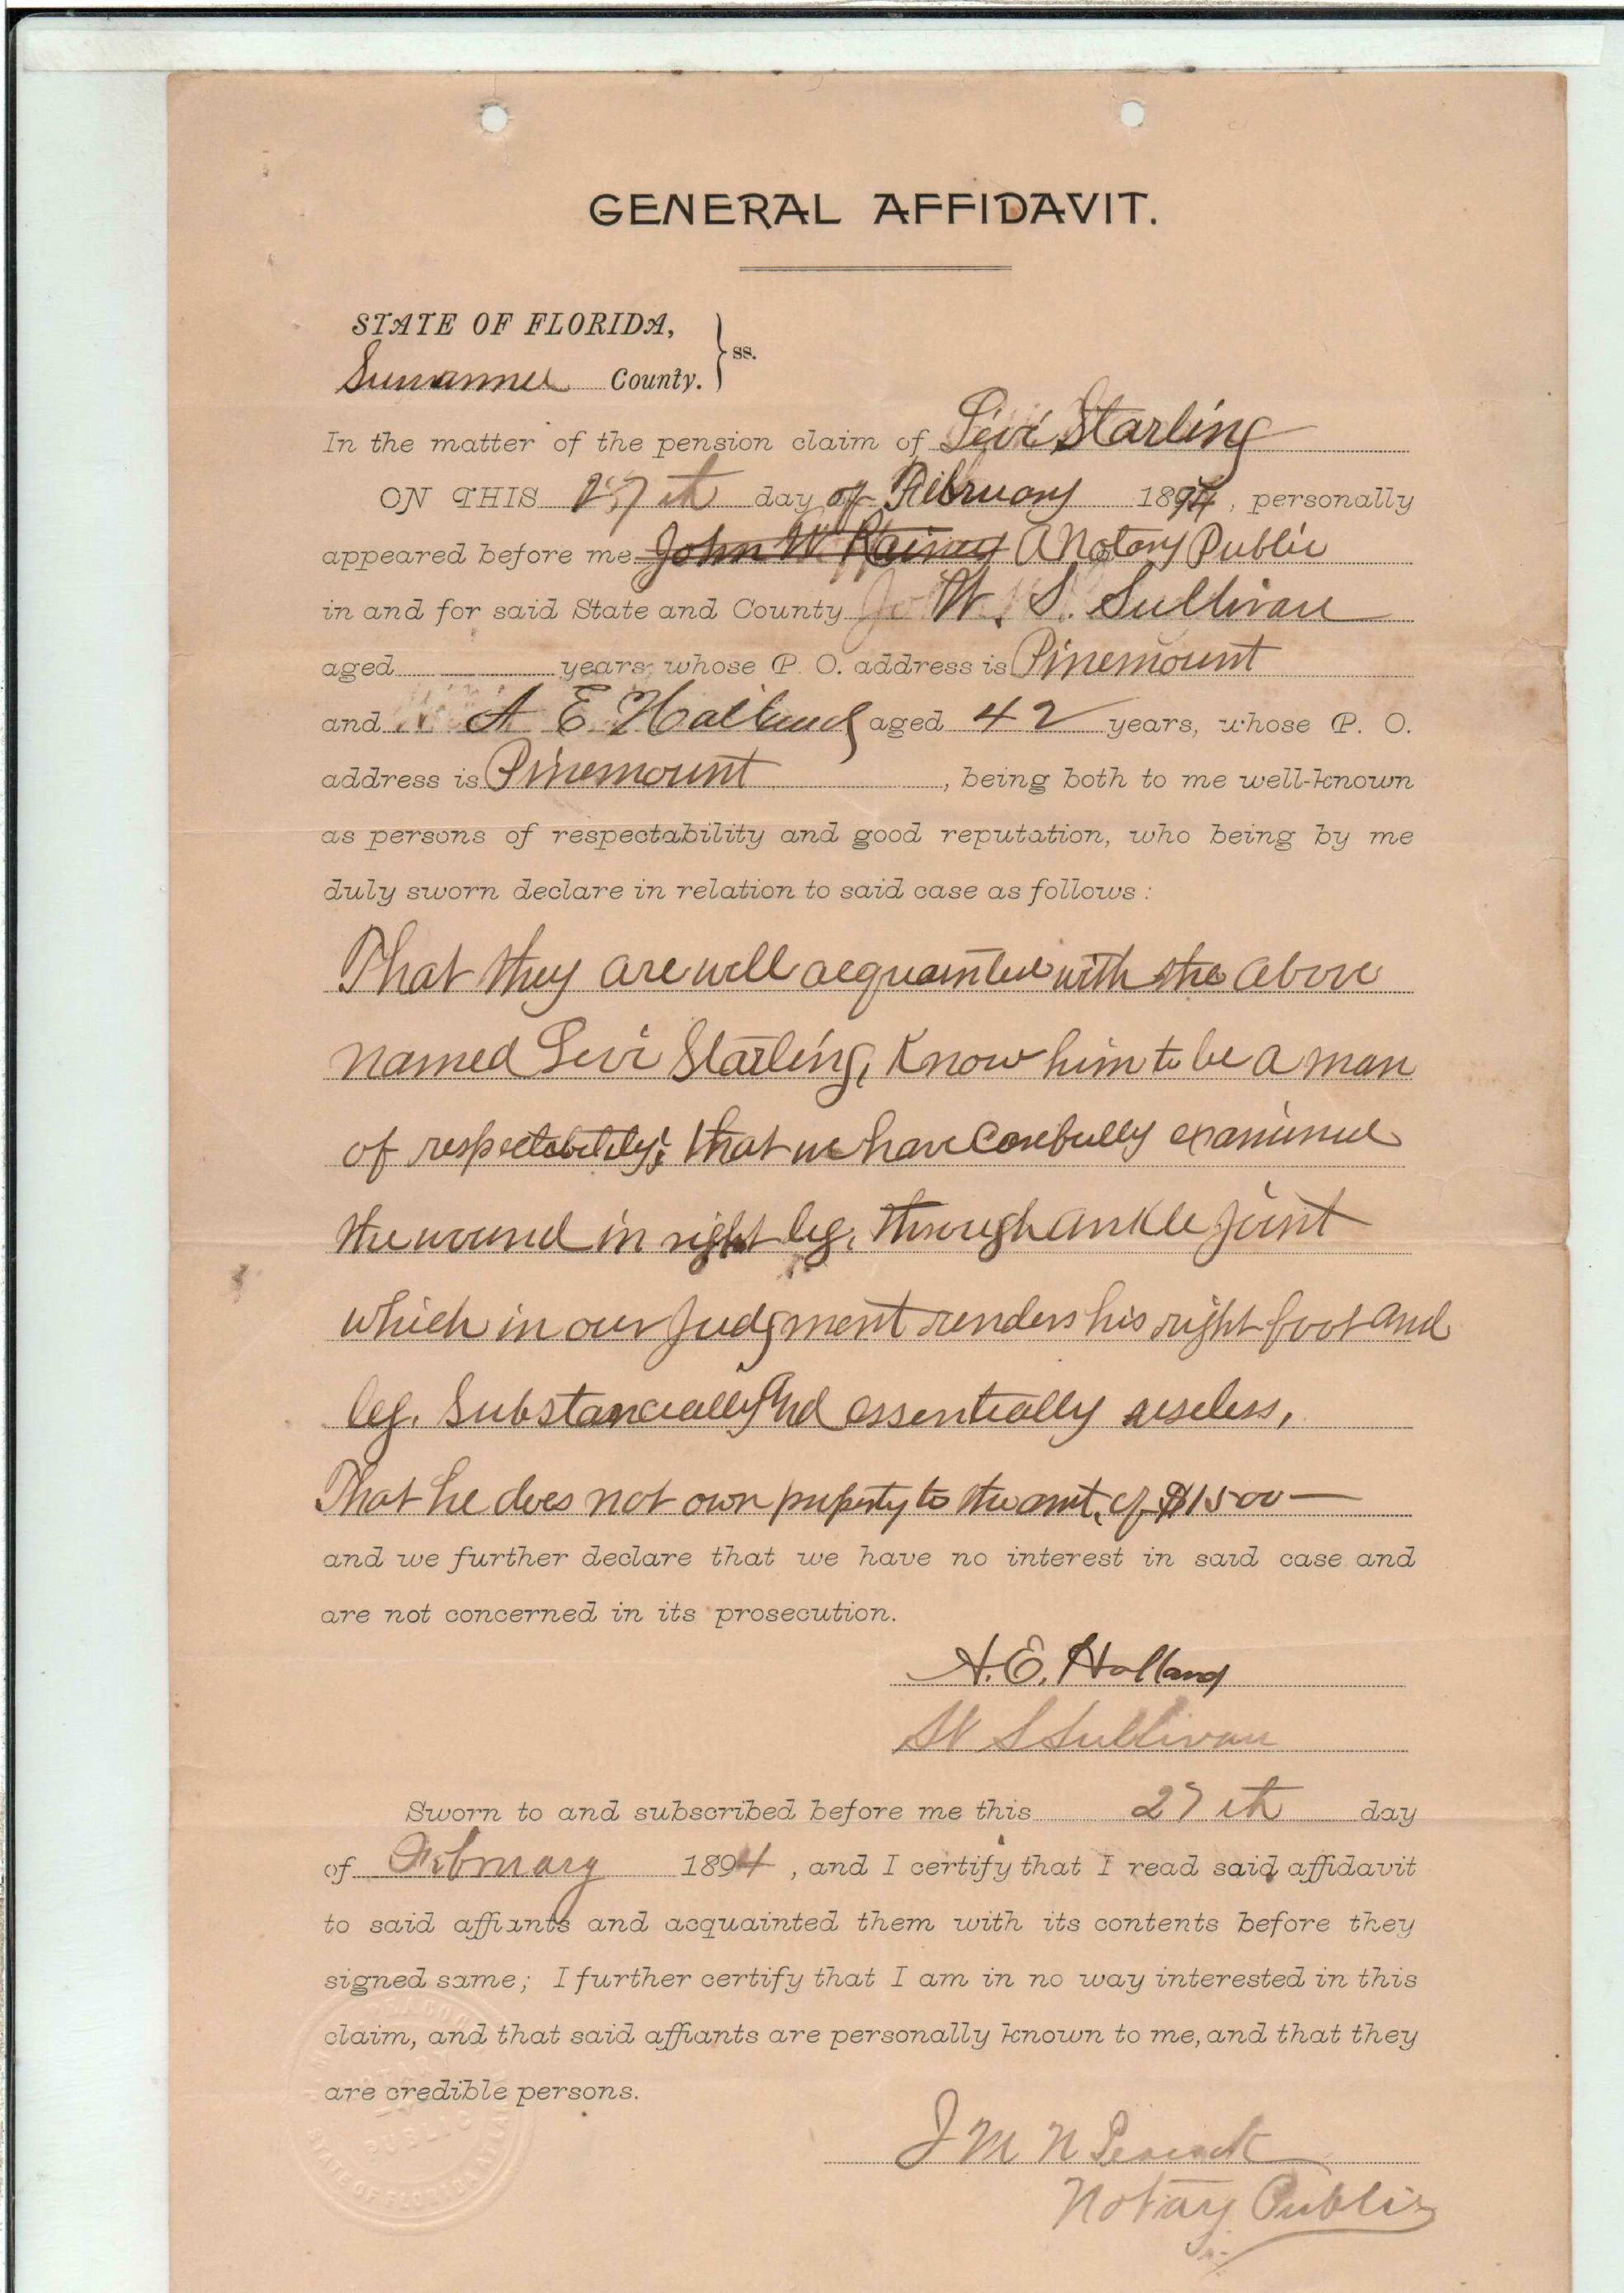 GENERAL AFFIDAVIT.
STATE OF FLORIDA,
Suwannee County. } ss.
In the matter of the pension claim of Levi Starling
ON THIS 27th day of February 1894, personally
appeared before me John W Rainey A Notary Public
in and for said State and County W. S. Sullivan
aged years, whose P. O. address is Pinemount
and A E Holland aged 42 years, whose P. O.
address is Pinemount, being both to me well-known
as persons of respectability and good reputation, who being by me
duly sworn declare in relation to said case as follows:
That they are well acquainted with the above
named Levi Starling, Know him to be a man
of respectability; that we have carefully examined
the wound in right leg, through ankle joint
which in our Judgment renders his right foot and
leg. Substancially and essentially useless,
That he does not own property to the amt. of $1500—
and we further declare that we have no interest in said case and
are not concerned in its prosecution.
A. E. Holland
W S Sullivan
Sworn to and subscribed before me this 27th day
of February 1894, and I certify that I read said affidavit
to said affiants and acquainted them with its contents before they
signed same; I further certify that I am in no way interested in this
claim, and that said affiants are personally known to me, and that they
are credible persons.
PUBLIC
STATE OF FLORIDA AT LARGE
J M N Peacock
Notary Public